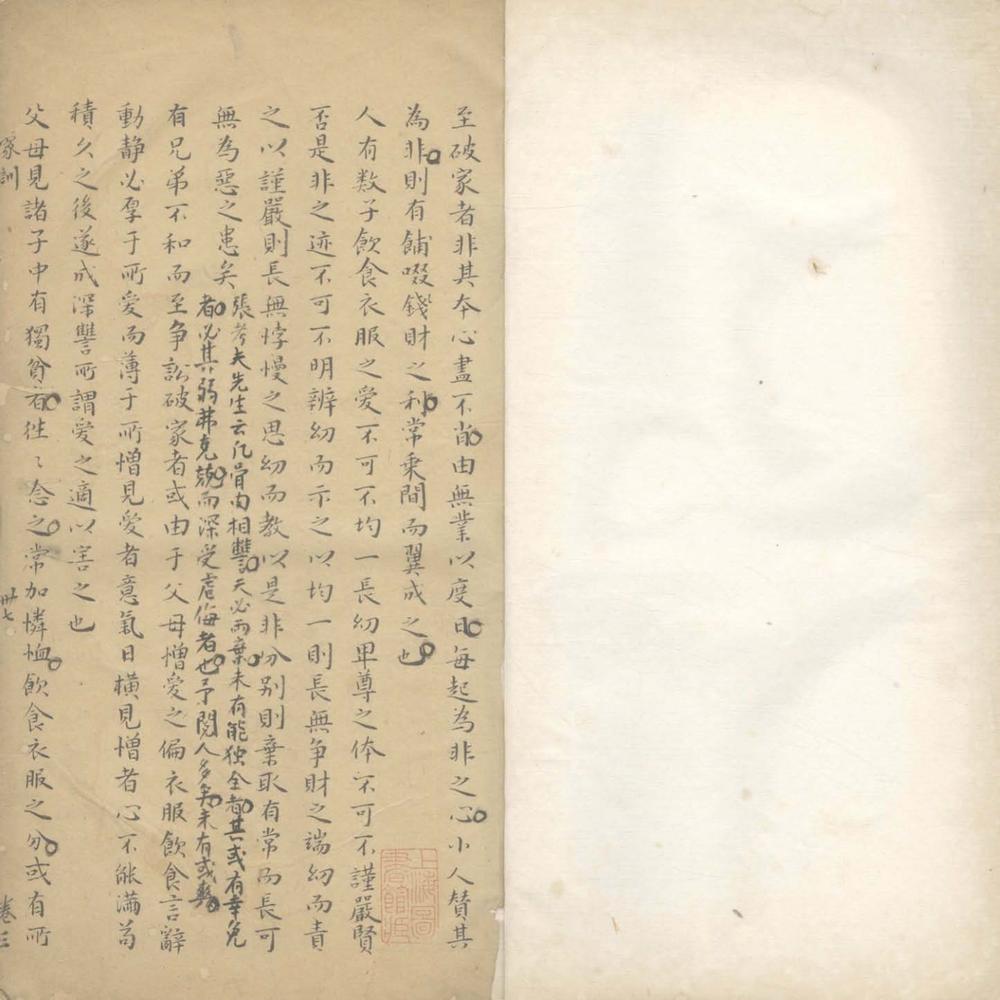 至破家者非其本心盡不肖由無業以度日每起為非之心小人贊其
為非則有餔啜錢財之利常乘間而翼成之也
人有数子飲食衣服之愛不可不均一長幼卑尊之体不可不謹嚴賢
否是非之迹不可不明辨幼而示之以均一則長無争財之端幼而責
之以謹嚴則長無悖慢之思幼而教以是非分别則棄取有常而長可
無為惡之患矣
張考夫先生云凡骨肉相讐天必两棄未有能独全者其或有幸免
者必其弱弗克兢而深受虐侮者也予閱人多矣未有或爽
有兄弟不和而至争訟破家者或由于父母憎愛之偏衣服飲食言辭
動静必厚于所愛而薄于所憎見愛者意氣日横見憎者心不能满為
積久之後遂成深讐所謂愛之適以害之也
父母見諸子中有獨貧者徃〻念之常加憐恤飲食衣服之分或有所
家訓
卅七
卷三
上海圖書館藏